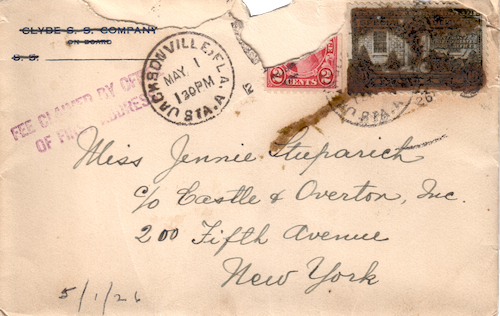 CLYDE S. S. COMPANY
ON BOARD
S. S.
JACKSONVILLE, FLA.
MAY 1
130PM
STA. A
2 CENTS 2
FEE CLAIMED BY OFFICE
OF FIRST ADDRESS
STA. A
26
Miss Jennie Stuparich
c/o Castle & Overton, Inc.
200 Fifth Avenue
New York
5/1/26